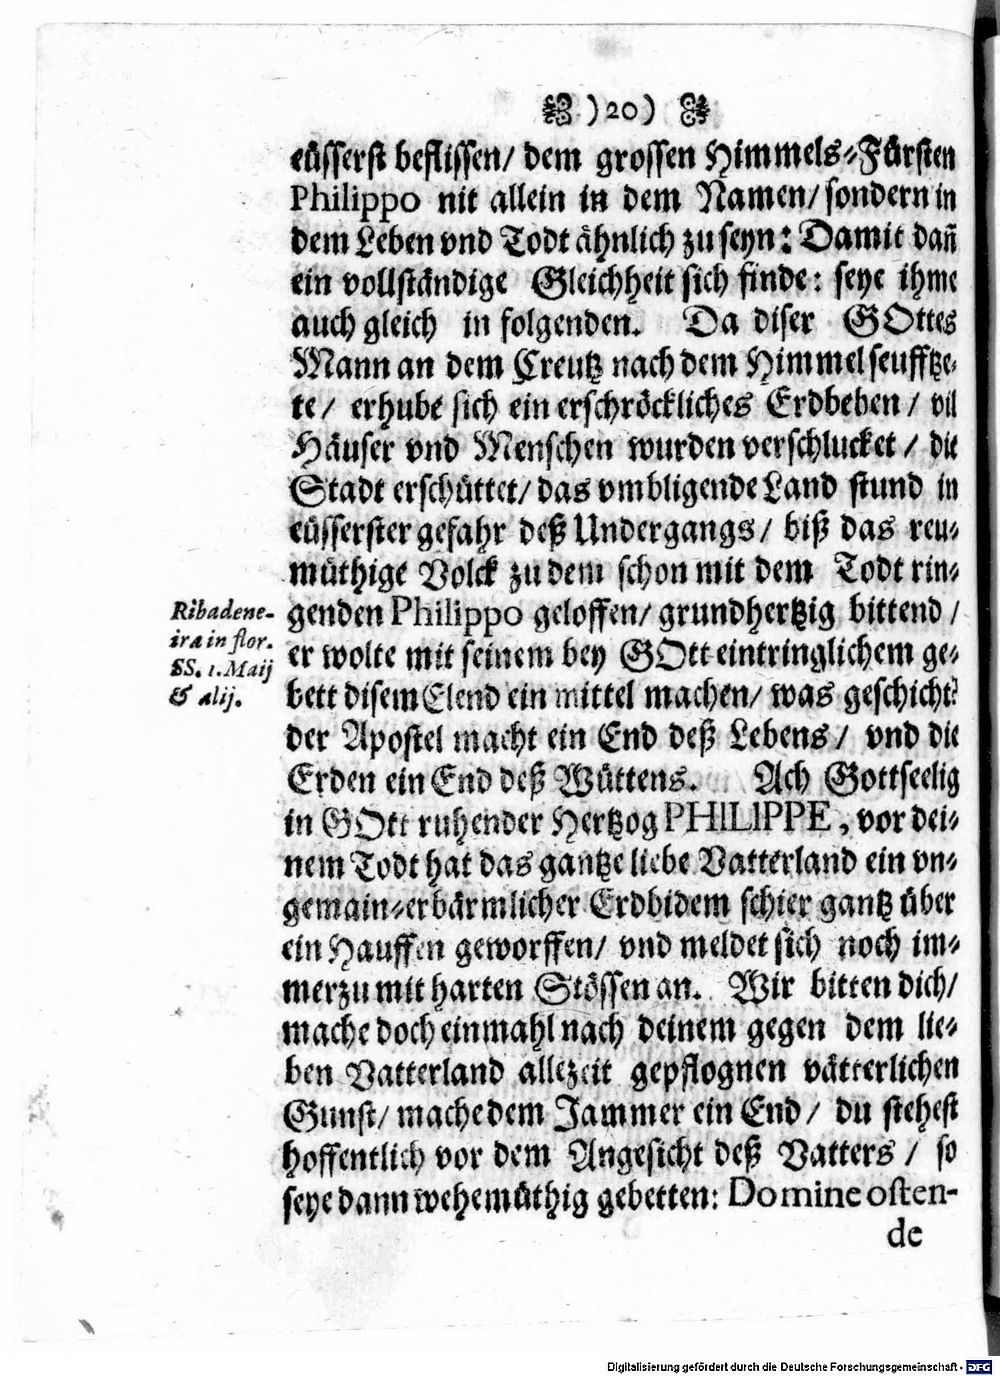 )20)
eüsserst beflissen/ dem grossen Himmels-Fürsten
Philippo nit allein in dem Namen/ sondern in
dem Leben vnd Todt ähnlich zu seyn: Damit dañ
ein vollständige Gleichheit sich finde: seye ihme
auch gleich in folgenden. Da diser GOttes
Mann an dem Creutz nach dem Himmel seufftze-
te/ erhube sich ein erschröckliches Erdbeben/ vil
Häuser vnd Menschen wurden verschlucket/ die
Stadt erschüttet/ das vmbligende Land stund in
eüsserster gefahr deß Undergangs/ biß das reu-
müthige Volck zu dem schon mit dem Todt rin-
genden Philippo geloffen/ grundhertzig bittend/
er wolte mit seinem bey GOtt eintringlichem ge-
bett disem Elend ein mittel machen/ was geschicht?
der Apostel macht ein End deß Lebens/ vnd die
Erden ein End deß Wüttens. Ach Gottseelig
in GOtt ruhender Hertzog PHILIPPE, vor dei-
nem Todt hat das gantze liebe Vatterland ein vn-
gemain-erbärmlicher Erdbidem schier gantz über
ein Hauffen geworffen/ vnd meldet sich noch im-
merzu mit harten Stössen an. Wir bitten dich/
mache doch einmahl nach deinem gegen dem lie-
ben Vatterland allezeit gepflognen vätterlichen
Gunst/ mache dem Jammer ein End/ du stehest
hoffentlich vor dem Angesicht deß Vatters/ so
seye dann wehemüthig gebetten: Domine osten-
de
Ribadene-
ira in flor.
SS. 1. Maij
& alij.
Digitalisierung gefördert durch die Deutsche Forschungsgemeinschaft - DFG